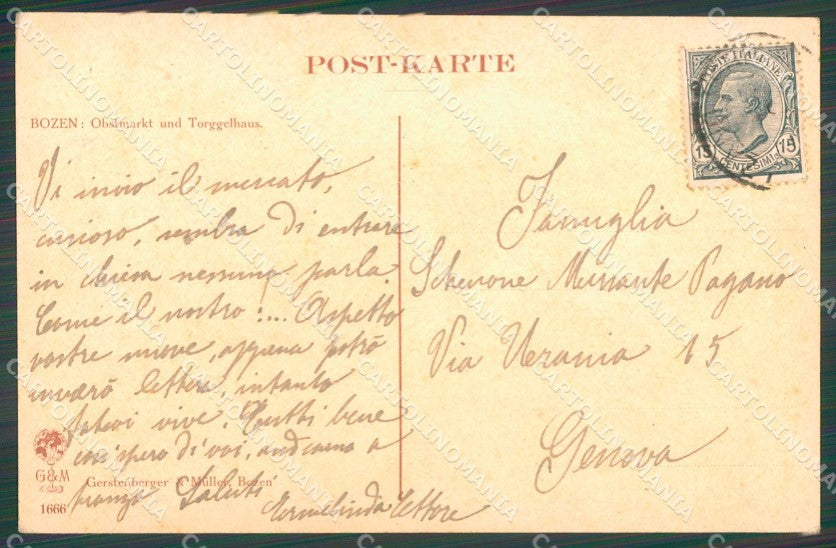 POST-KARTE
BOZEN: Obstmarkt und Torggelhaus.
POSTE ITALIANE
15 15
CENTESIMI
Vi invio il mercato,
curioso, sembra di entrare
in chiesa nessuno parla
Come il nostro!... Aspetto
vostre nuove, appena potrò
invierò lettera, intanto
vive. Tutti bene
così spero di voi, andiamo a
pranzo Saluti
Ermelinda Ettore
Famiglia
Schenone Murrante Pagano
Via Urania 15
Genova
G&M
Gerstenberger & Müller, Bozen
1666
CARTOLINOMANIA